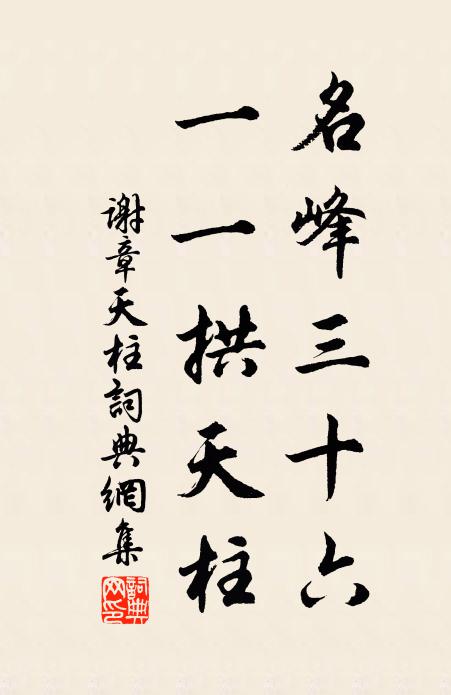 名峰三十六
一一拱天柱
謝章天柱詞典網集
詞典
网印